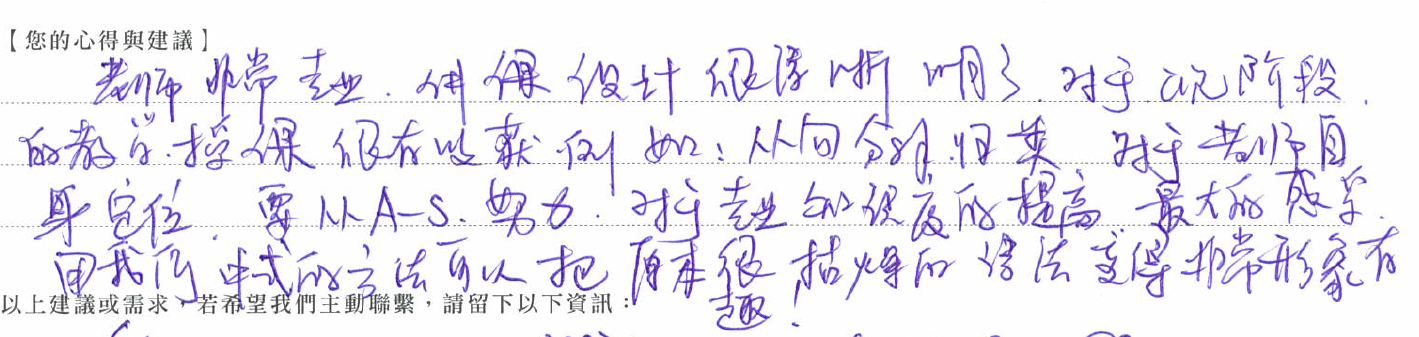 【您的心得與建議】
老师非常专业.备课设计很清晰明了.对于现阶段.
的教学.授课很有收获.例如:从句分解.归类 对于老师自
身定位.要从A-S.努力.对于专业知识度的提高 最大的感受.
用我们中式的方法可以把原来很枯燥的语法变得非常形象有
趣!
以上建議或需求,若希望我們主動聯繫,請留下以下資訊: